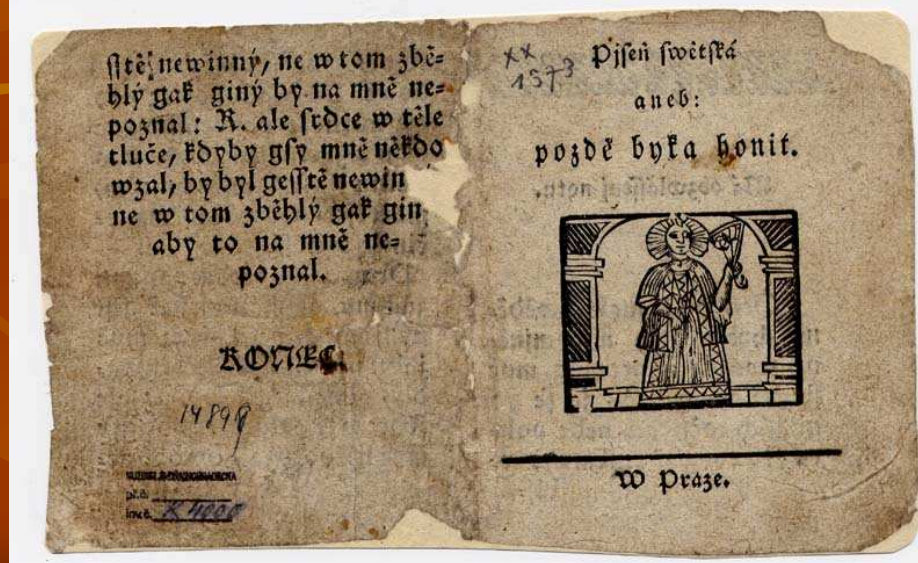 sstě newinný, ne w tom zbě-
hlý gak giný by na mně ne-
poznal: R. ale srdce w těle
tluče, kdyby gsy mně někdo
wzal, by byl gesstě newin
ne w tom zběhlý gak gin
aby to na mně ne-
poznal.
KONEC.
14898
př.č.
inv.č. K 4000
xx
1573
Pjseň swětská
aneb:
pozdě byka honit.
W Praze.